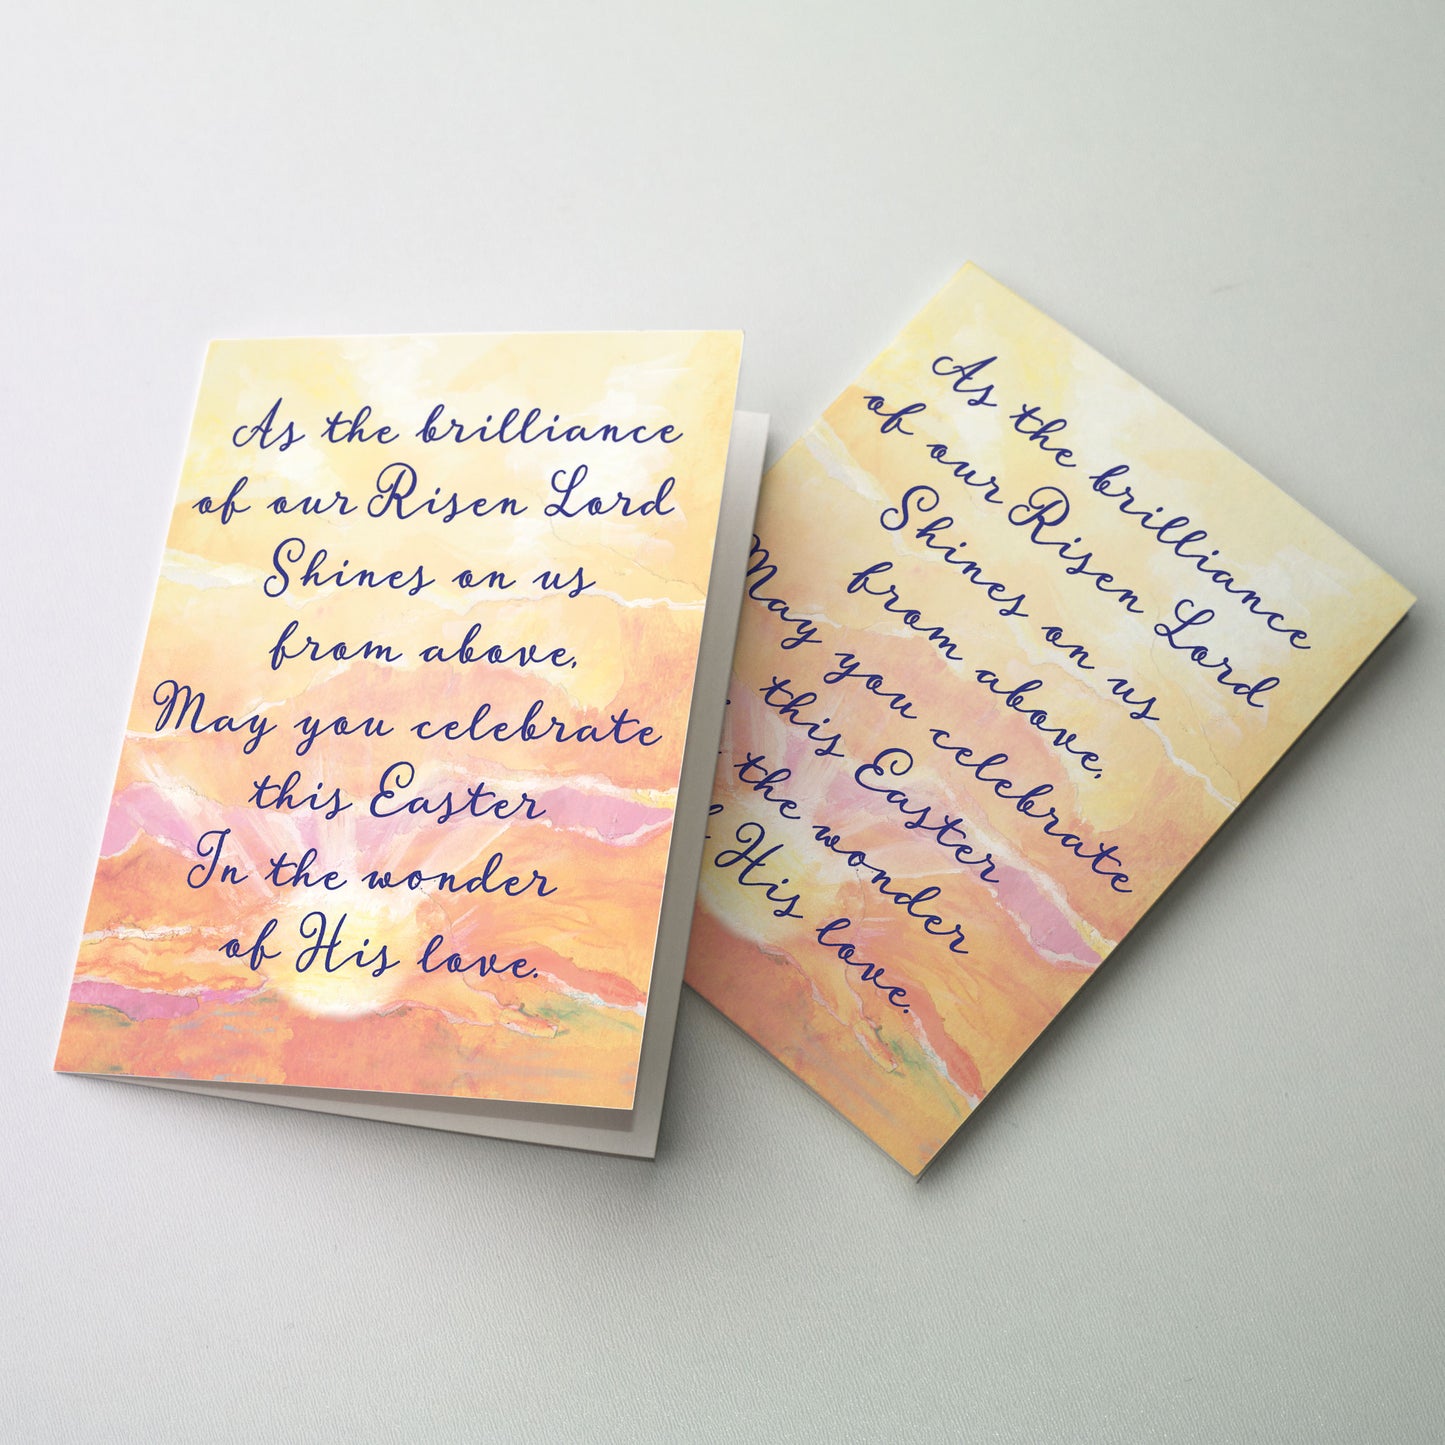 As the brilliance
of our Risen Lord
Shines on us
from above,
May you celebrate
this Easter
In the wonder
of His love.
As the brilliance
of our Risen Lord
Shines on us
from above,
May you celebrate
this Easter
the wonder
His love.